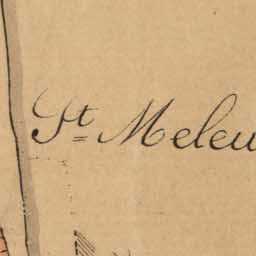 St. Meleu